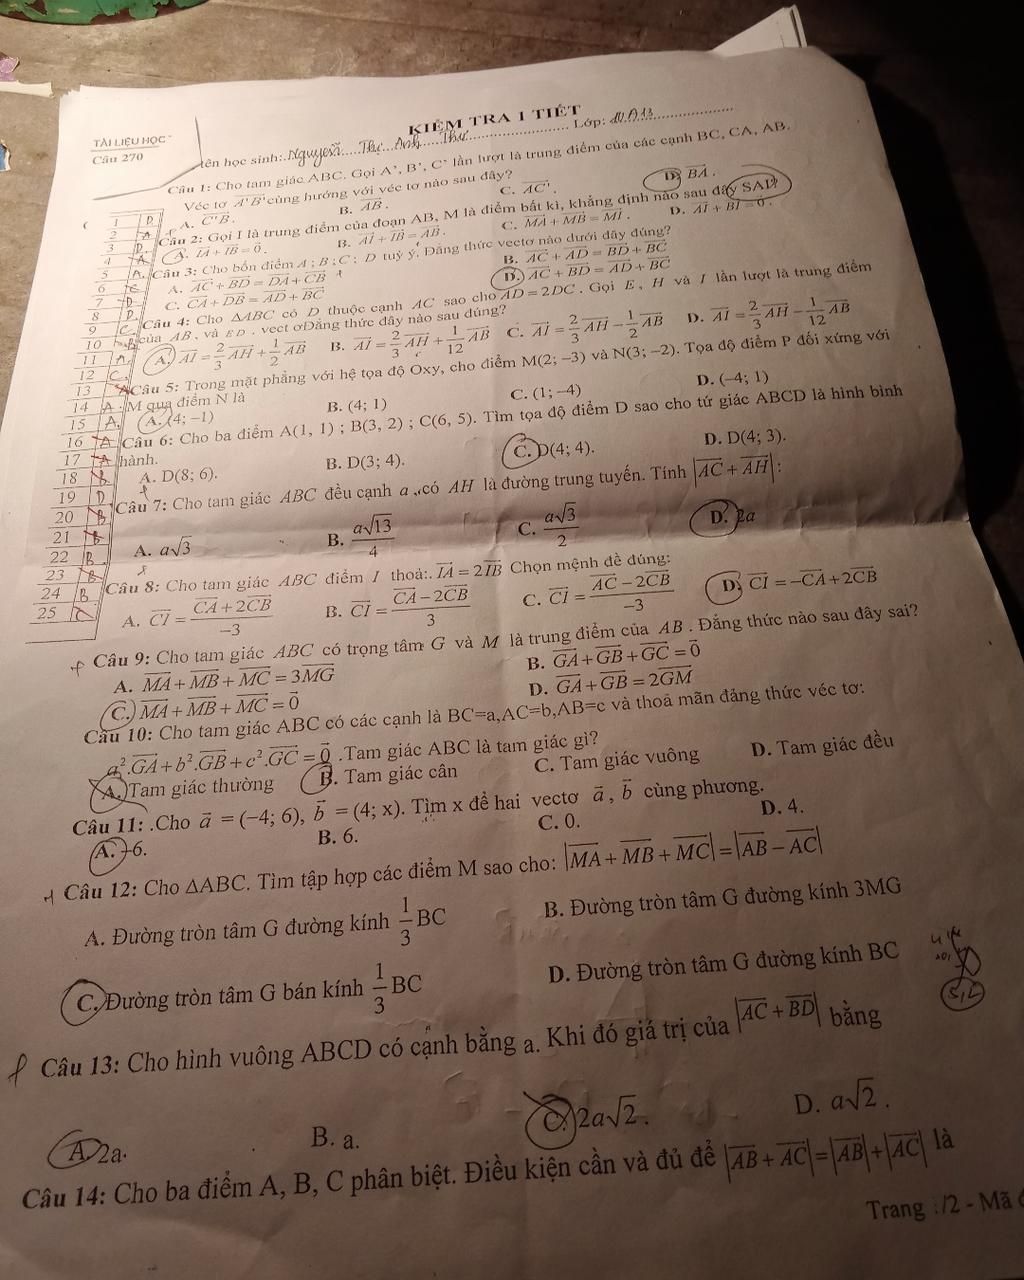 KIỂM TRA 1 TIẾT
TÀI LIỆU HỌC
Câu 270
tên học sinh:..Nguyễn....Thị...Anh....Thư..................... Lớp: 10.A13
Câu 1: Cho tam giác ABC. Gọi A', B', C' lần lượt là trung điểm của các cạnh BC, CA, AB.
Véc tơ A'B' cùng hướng với véc tơ nào sau đây?
A. C'B. B. AB. C. AC'. D. BA.
Câu 2: Gọi I là trung điểm của đoạn AB, M là điểm bất kì, khẳng định nào sau đây SAI?
A. IA + IB = 0. B. AI + IB = AB. C. MA + MB = MI. D. AI + BI = 0.
Câu 3: Cho bốn điểm A ; B ; C ; D tuỳ ý. Đẳng thức vectơ nào dưới đây đúng?
A. AC + BD = DA + CB B. AC + AD = BD + BC
C. CA + DB = AD + BC D. AC + BD = AD + BC
Câu 4: Cho ΔABC có D thuộc cạnh AC sao cho AD = 2DC. Gọi E, H và I lần lượt là trung điểm
của AB, và ED. vect ơĐẳng thức đây nào sau đúng?
A. AI = 2/3 AH + 1/2 AB B. AI = 2/3 AH + 1/12 AB C. AI = 2/3 AH − 1/2 AB D. AI = 2/3 AH − 1/12 AB
Câu 5: Trong mặt phẳng với hệ tọa độ Oxy, cho điểm M(2; −3) và N(3; −2). Tọa độ điểm P đối xứng với
M qua điểm N là
A. (4; −1) B. (4; 1) C. (1; −4) D. (−4; 1)
Câu 6: Cho ba điểm A(1, 1) ; B(3, 2) ; C(6, 5). Tìm tọa độ điểm D sao cho tứ giác ABCD là hình bình
hành.
A. D(8; 6). B. D(3; 4). C. D(4; 4). D. D(4; 3).
Câu 7: Cho tam giác ABC đều cạnh a , có AH là đường trung tuyến. Tính |AC + AH| :
A. a√3 B. a√13/4 C. a√3/2 D. 2a
Câu 8: Cho tam giác ABC điểm I thoả:. IA = 2IB Chọn mệnh đề đúng:
A. CI = (CA + 2CB)/−3 B. CI = (CA − 2CB)/3 C. CI = (AC − 2CB)/−3 D. CI = −CA + 2CB
Câu 9: Cho tam giác ABC có trọng tâm G và M là trung điểm của AB. Đẳng thức nào sau đây sai?
A. MA + MB + MC = 3MG B. GA + GB + GC = 0
C. MA + MB + MC = 0 D. GA + GB = 2GM
Câu 10: Cho tam giác ABC có các cạnh là BC=a,AC=b,AB=c và thoả mãn đảng thức véc tơ:
a².GA + b².GB + c².GC = 0 .Tam giác ABC là tam giác gì?
A. Tam giác thường B. Tam giác cân C. Tam giác vuông D. Tam giác đều
Câu 11: .Cho a = (−4; 6), b = (4; x). Tìm x để hai vectơ a , b cùng phương.
A. −6. B. 6. C. 0. D. 4.
Câu 12: Cho ΔABC. Tìm tập hợp các điểm M sao cho: |MA + MB + MC| = |AB − AC|
A. Đường tròn tâm G đường kính 1/3 BC B. Đường tròn tâm G đường kính 3MG
C. Đường tròn tâm G bán kính 1/3 BC D. Đường tròn tâm G đường kính BC
Câu 13: Cho hình vuông ABCD có cạnh bằng a. Khi đó giá trị của |AC + BD| bằng
A. 2a. B. a. C. 2a√2. D. a√2.
Câu 14: Cho ba điểm A, B, C phân biệt. Điều kiện cần và đủ để |AB + AC| = |AB| + |AC| là
Trang :/2 - Mã
1 D
2 A
3 D
4 A
5 A
6 C
7 D
8 D
9 C
10 B
11 A
12 C
13 A
14 A
15 A
16 A
17 A
18 B
19 D
20 B
21 B
22 B
23 B
24 B
25